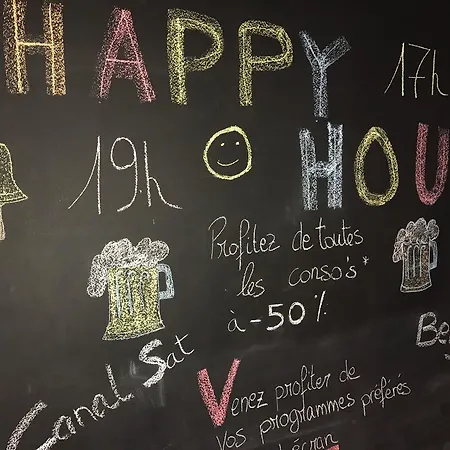 HAPPY
17h
19h
HOU
Profitez de toutes
les conso's*
à -50%
Be
Canal Sat
Venez profiter de
Vos programmes préférés
écran